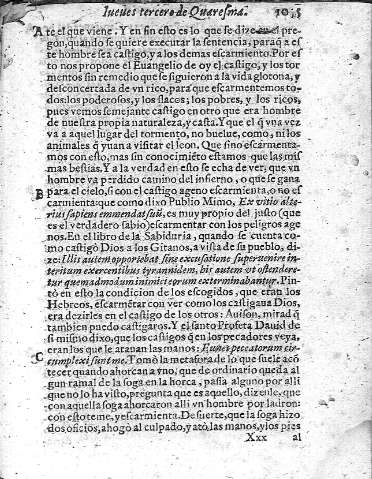 Iueues tercero de Quaresma. 1045
A te el que viene. Y en sin esto es lo que se dize en el pre-
gon, quando se quiere executar la sentencia, paraq̃ a es
te hombre sea castigo, y a los demas escarmiento. Por es
to nos propone el Euangelio de oy el castigo, y los tor-
mentos sin remedio que se siguieron a la vida glotona, y
desconcertada de vn rico, para que escarmentemos to-
dos: los poderosos, y los flacos; los pobres, y los ricos,
pues vemos semejante castigo en otro que era hombre
de nuestra propia naturaleza, y casta. Y que el q̃ vna vez
va a aquel lugar del tormento, no buelue, como, ni los
animales q̃ yuan a visitar el leon. Que sino escarmenta-
mos con esto, mas sin conocimiẽto estamos que las mis
mas bestias. Y a la verdad en esto se echa de ver, que vn
hombre va perdido camino del infierno, o que se gana
B para el cielo, si con el castigo ageno escarmienta, o no es
carmienta: que como dixo Publio Mimo, Ex vitio alte-
rius sapiens emmendat suũ, es muy propio del justo (que
es el verdadero sabio) escarmentar con los peligros age
nos. En el libro de la Sabiduria, quando se cuenta co-
mo castigò Dios a los Gitanos, a vista de su pueblo, di-
ze: Illis autem oportebat sine excusatione superuenire in-
teritum exercentibus tyrannidem, his autem vt ostendere-
tur quemadmodum inimici eorum exterminabantur. Pin-
tò en esto la condicion de los escogidos, que eran los
Hebreos, escarmẽtar con ver como los castigaua Dios,
era dezirles en el castigo de los otros: Auison, mirad q̃
tambien puedo castigaros. Y el santo Profeta Dauid de
si mismo dixo, que los castigos q̃ en los pecadores veya,
eran los que le atauan las manos: Funes peccatorum cir-
C cumplexi sunt me. Tomò la metafora de lo que suele aco
tecer quando ahorcan a vno, que de ordinario queda al
gun ramal de la soga en la horca, passa alguno por alli
que no lo ha visto, pregunta que es aquello, dizenle, que
con aquella soga ahorcaron alli vn hombre por ladron:
con esto teme, y escarmienta. De suerte, que la soga hizo
dos oficios, ahogò al culpado, y atò las manos, y los pies
Xxx al